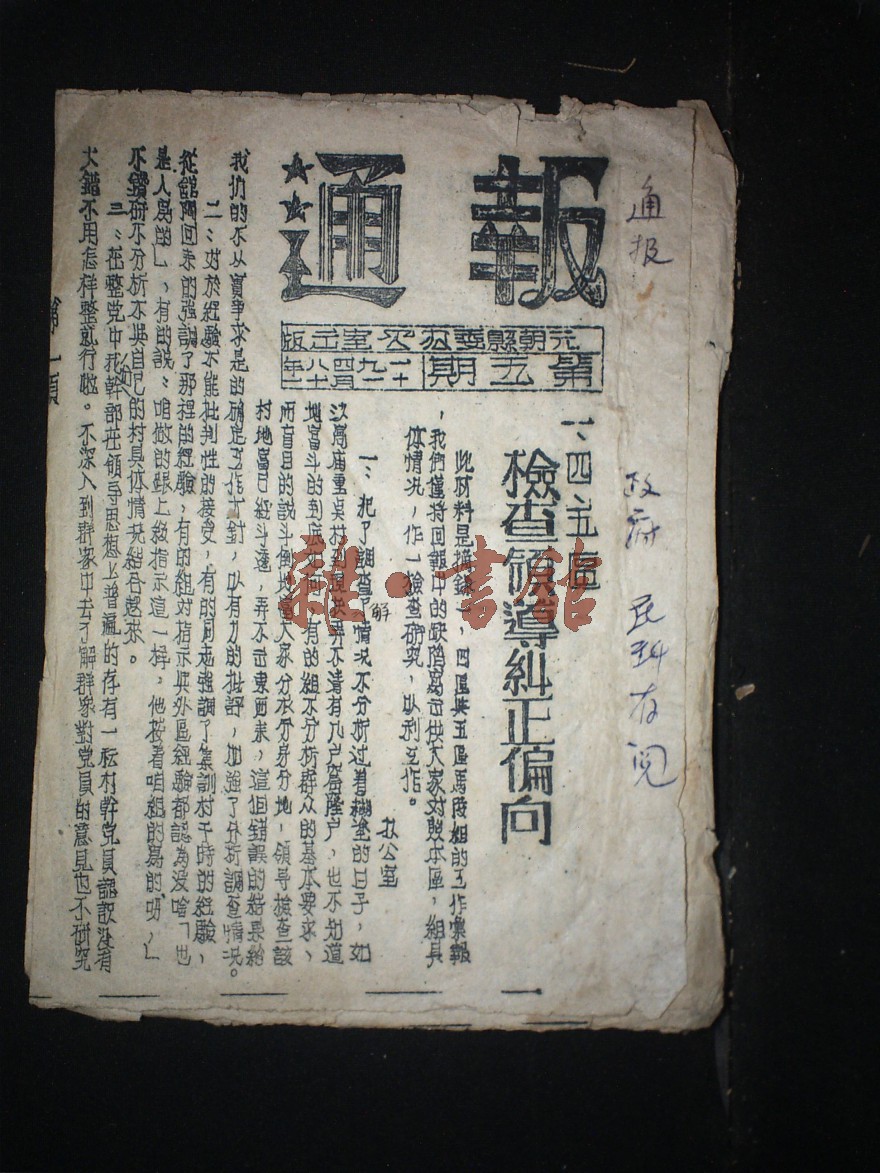 通报
政府 民科存阅
通報
元朝縣委办公室出版
第五期
一九四八年
十一月
一、四、五區
檢查領導糾正偏向
此材料是摘錄一，四區與五區馬陵組的工作彙報
，我們僅將回報中的缺陷寫出供大家对照本區，組具
体情况，作一檢查研究，以利工作。
办公室
一：把了調查了解情况不分析过着糊塗的日子，如
汶房庙重貞村到現在弄不清有几户富隆户，也不知道
地富斗的到底如何，有的組不分析群众的基本要求、
而盲目的說斗倒地富大家分水分身分地，領导檢查該
村地富已經斗透，弄不出東西来，這個錯誤的結果給
我們的不以實事求是的确定工作方針，以有力的批評，加強了分析調查情况。
二：对於經驗不能批判性的接受，有的同志強調了集訓村干時的經驗，
從舘陶回来的強調了那裡的經驗，有的組对指示與外區經驗都認為没啥「也
是人寫的」，有的說：咱做的跟上級指示這一样，他按着咱組的寫的吶，」
不鑽研不分析不與自己的村具体情况結合起来。
三：在整党中我幹部在領导思想上普遍的存有一种村幹党員認識没有
大錯不用怎样整就行啦。不深入到群家中去了解群家對党員的意見也不研究
第一頁
雜·書館